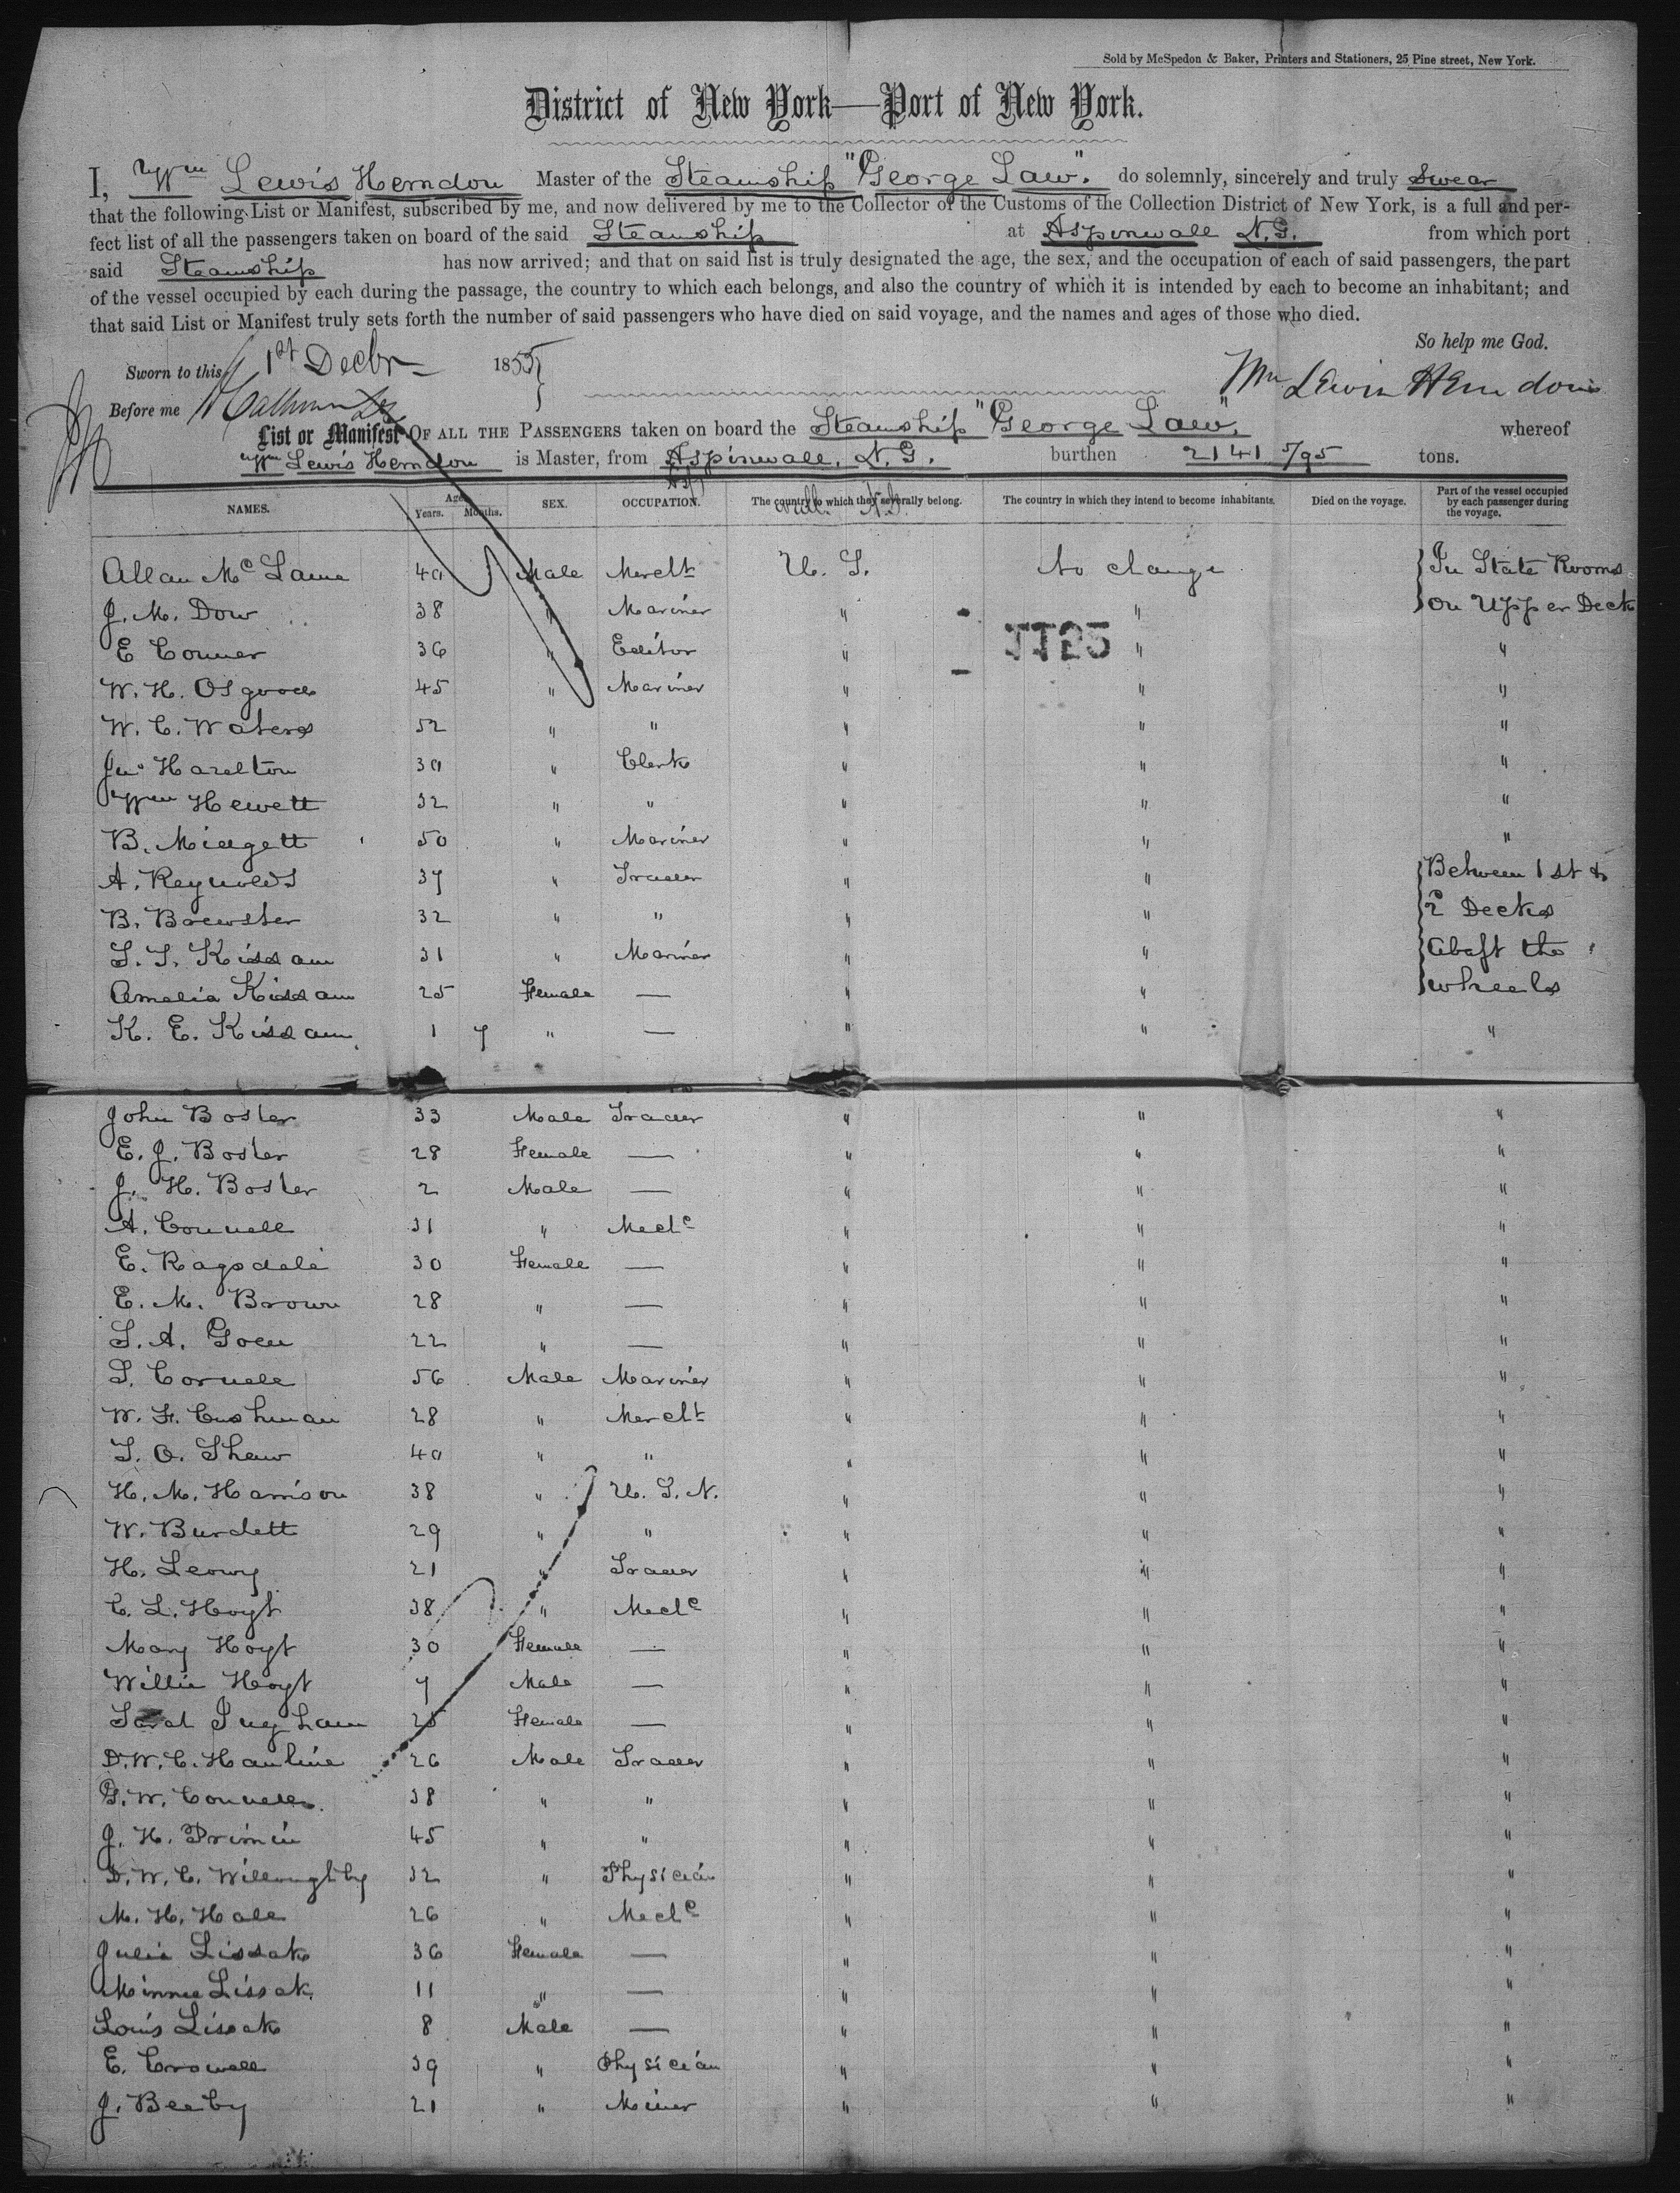 Sold by McSpedon & Baker, Printers and Stationers, 25 Pine street, New York.
District of New York—Port of New York.
I, Wm Lewis Herndon Master of the Steamship "George Law". do solemnly, sincerely and truly swear
that the following List or Manifest, subscribed by me, and now delivered by me to the Collector of the Customs of the Collection District of New York, is a full and per-
fect list of all the passengers taken on board of the said Steamship at Aspinwall N.G. from which port
said Steamship has now arrived; and that on said list is truly designated the age, the sex, and the occupation of each of said passengers, the part
of the vessel occupied by each during the passage, the country to which each belongs, and also the country of which it is intended by each to become an inhabitant; and
that said List or Manifest truly sets forth the number of said passengers who have died on said voyage, and the names and ages of those who died.
So help me God.
Sworn to this 1st Decbr 1855
Wm Lewis Herndon
Before me
List or Manifest OF ALL THE PASSENGERS taken on board the Steamship "George Law", whereof
Wm Lewis Herndon is Master, from Aspinwall, N.G. burthen 2141 5/95 tons.
NAMES. Age. Years. Months. SEX. OCCUPATION. The country to which they severally belong. The country in which they intend to become inhabitants. Died on the voyage. Part of the vessel occupied by each passenger during the voyage.
Allan Mc Lane 40 Male Mercht U. S. No change In State Rooms
J. M. Dow 38 " Mariner " " on Upper Deck
E Conner 36 " Editor " " "
W. H. Osgood 45 " Mariner " " "
W. C. Waters 52 " " " " "
Jno Hazelton 30 " Clerk " " "
Wm Hewett 32 " " " " "
B. Midgett 50 " Mariner " " "
A. Reynolds 37 " Trader " " Between 1st &
B. Brewster 32 " " " " 2d Decks
S. S. Kissam 31 " Mariner " " abaft the
Amelia Kissam 25 Female — " " wheels
K. E. Kissam 1 7 " — " " "
John Bosler 33 Male Trader " " "
E. J. Bosler 28 Female — " " "
J. H. Bosler 2 Male — " " "
A. Connell 31 " Mechc " " "
E. Ragsdale 30 Female — " " "
E. M. Brown 28 " — " " "
S. A. Goen 22 " — " " "
S. Cornell 56 Male Mariner " " "
W. F. Cushman 28 " Mercht " " "
S. O. Shaw 40 " " " " "
H. M. Harrison 38 " U. S. N. " " "
W. Burdett 29 " " " " "
H. Leowy 21 " Trader " " "
C. L. Hoyt 38 " Mechc " " "
Mary Hoyt 30 Female — " " "
Willie Hoyt 7 Male — " " "
Sarah Ingham 25 Female — " " "
D. W. C. Hanline 26 Male Trader " " "
G. W. Connell 38 " " " " "
J. H. Primin 45 " " " " "
D. W. C. Willoughby 32 " Physician " " "
M. H. Hale 26 " Mechc " " "
Julia Lissak 36 Female — " " "
Minnee Lissak 11 " — " " "
Louis Lissak 8 Male — " " "
E. Crowell 39 " Physician " " "
J. Beeby 21 " Miner " " "